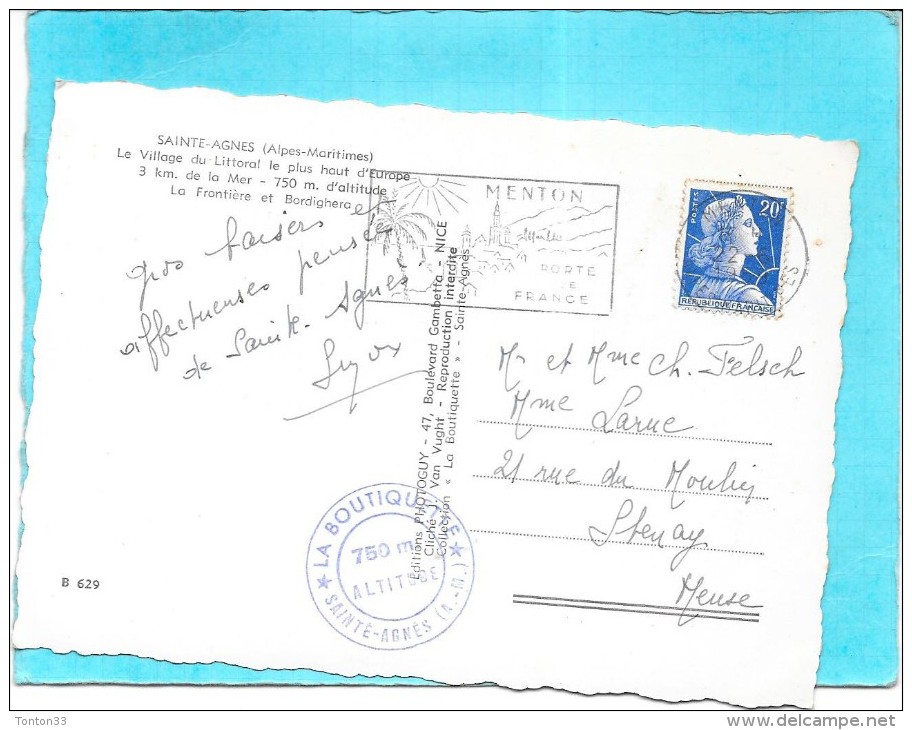 SAINTE-AGNES (Alpes-Maritimes)
Le Village du Littoral le plus haut d'Europe
3 km. de la Mer - 750 m. d'altitude
La Frontière et Bordighera
gros baisers et
affectueuses pensées
de Sainte-Agnès
B 629
MENTON
PORTE
DE
FRANCE
POSTES
20F
REPUBLIQUE FRANÇAISE
Editions PHOTOGUY - 47, Boulevard Gambetta - NICE
Cliché J. Van Vught - Reproduction interdite
Collection « La Boutiquette » - Sainte-Agnès
Mr et Mme Ch. Felsch
Mme Larue
21 rue du Moulin
Stenay
Meuse
★ LA BOUTIQUETTE ★
750 m.
ALTITUDE
SAINTE-AGNÈS (A.-M.)
Tonton33
www.delcampe.net